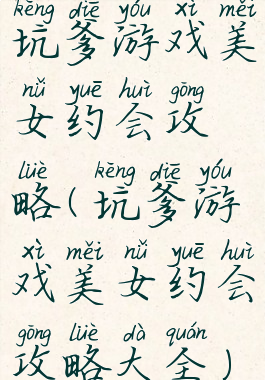 kēng diē yóu xì měi
坑爹游戏美
nǚ yuē huì gōng
女约会攻
lüè kēng diē yóu
略(坑爹游
xì měi nǚ yuē huì
戏美女约会
gōng lüè dà quán
攻略大全)